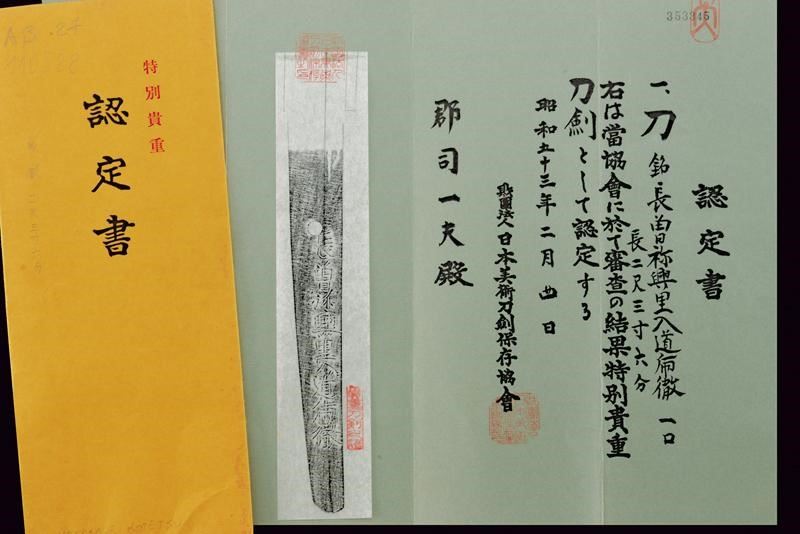 353345
認定書
一、刀 銘 長曽祢興里入道乕徹 一口
長二尺三寸六分
右は當協會に於て審査の結果特別貴重
刀劍として認定する
昭和五十三年二月四日
財團法人日本美術刀劍保存協會
郡司一夫殿
特別貴重
認定書
KOTETSU